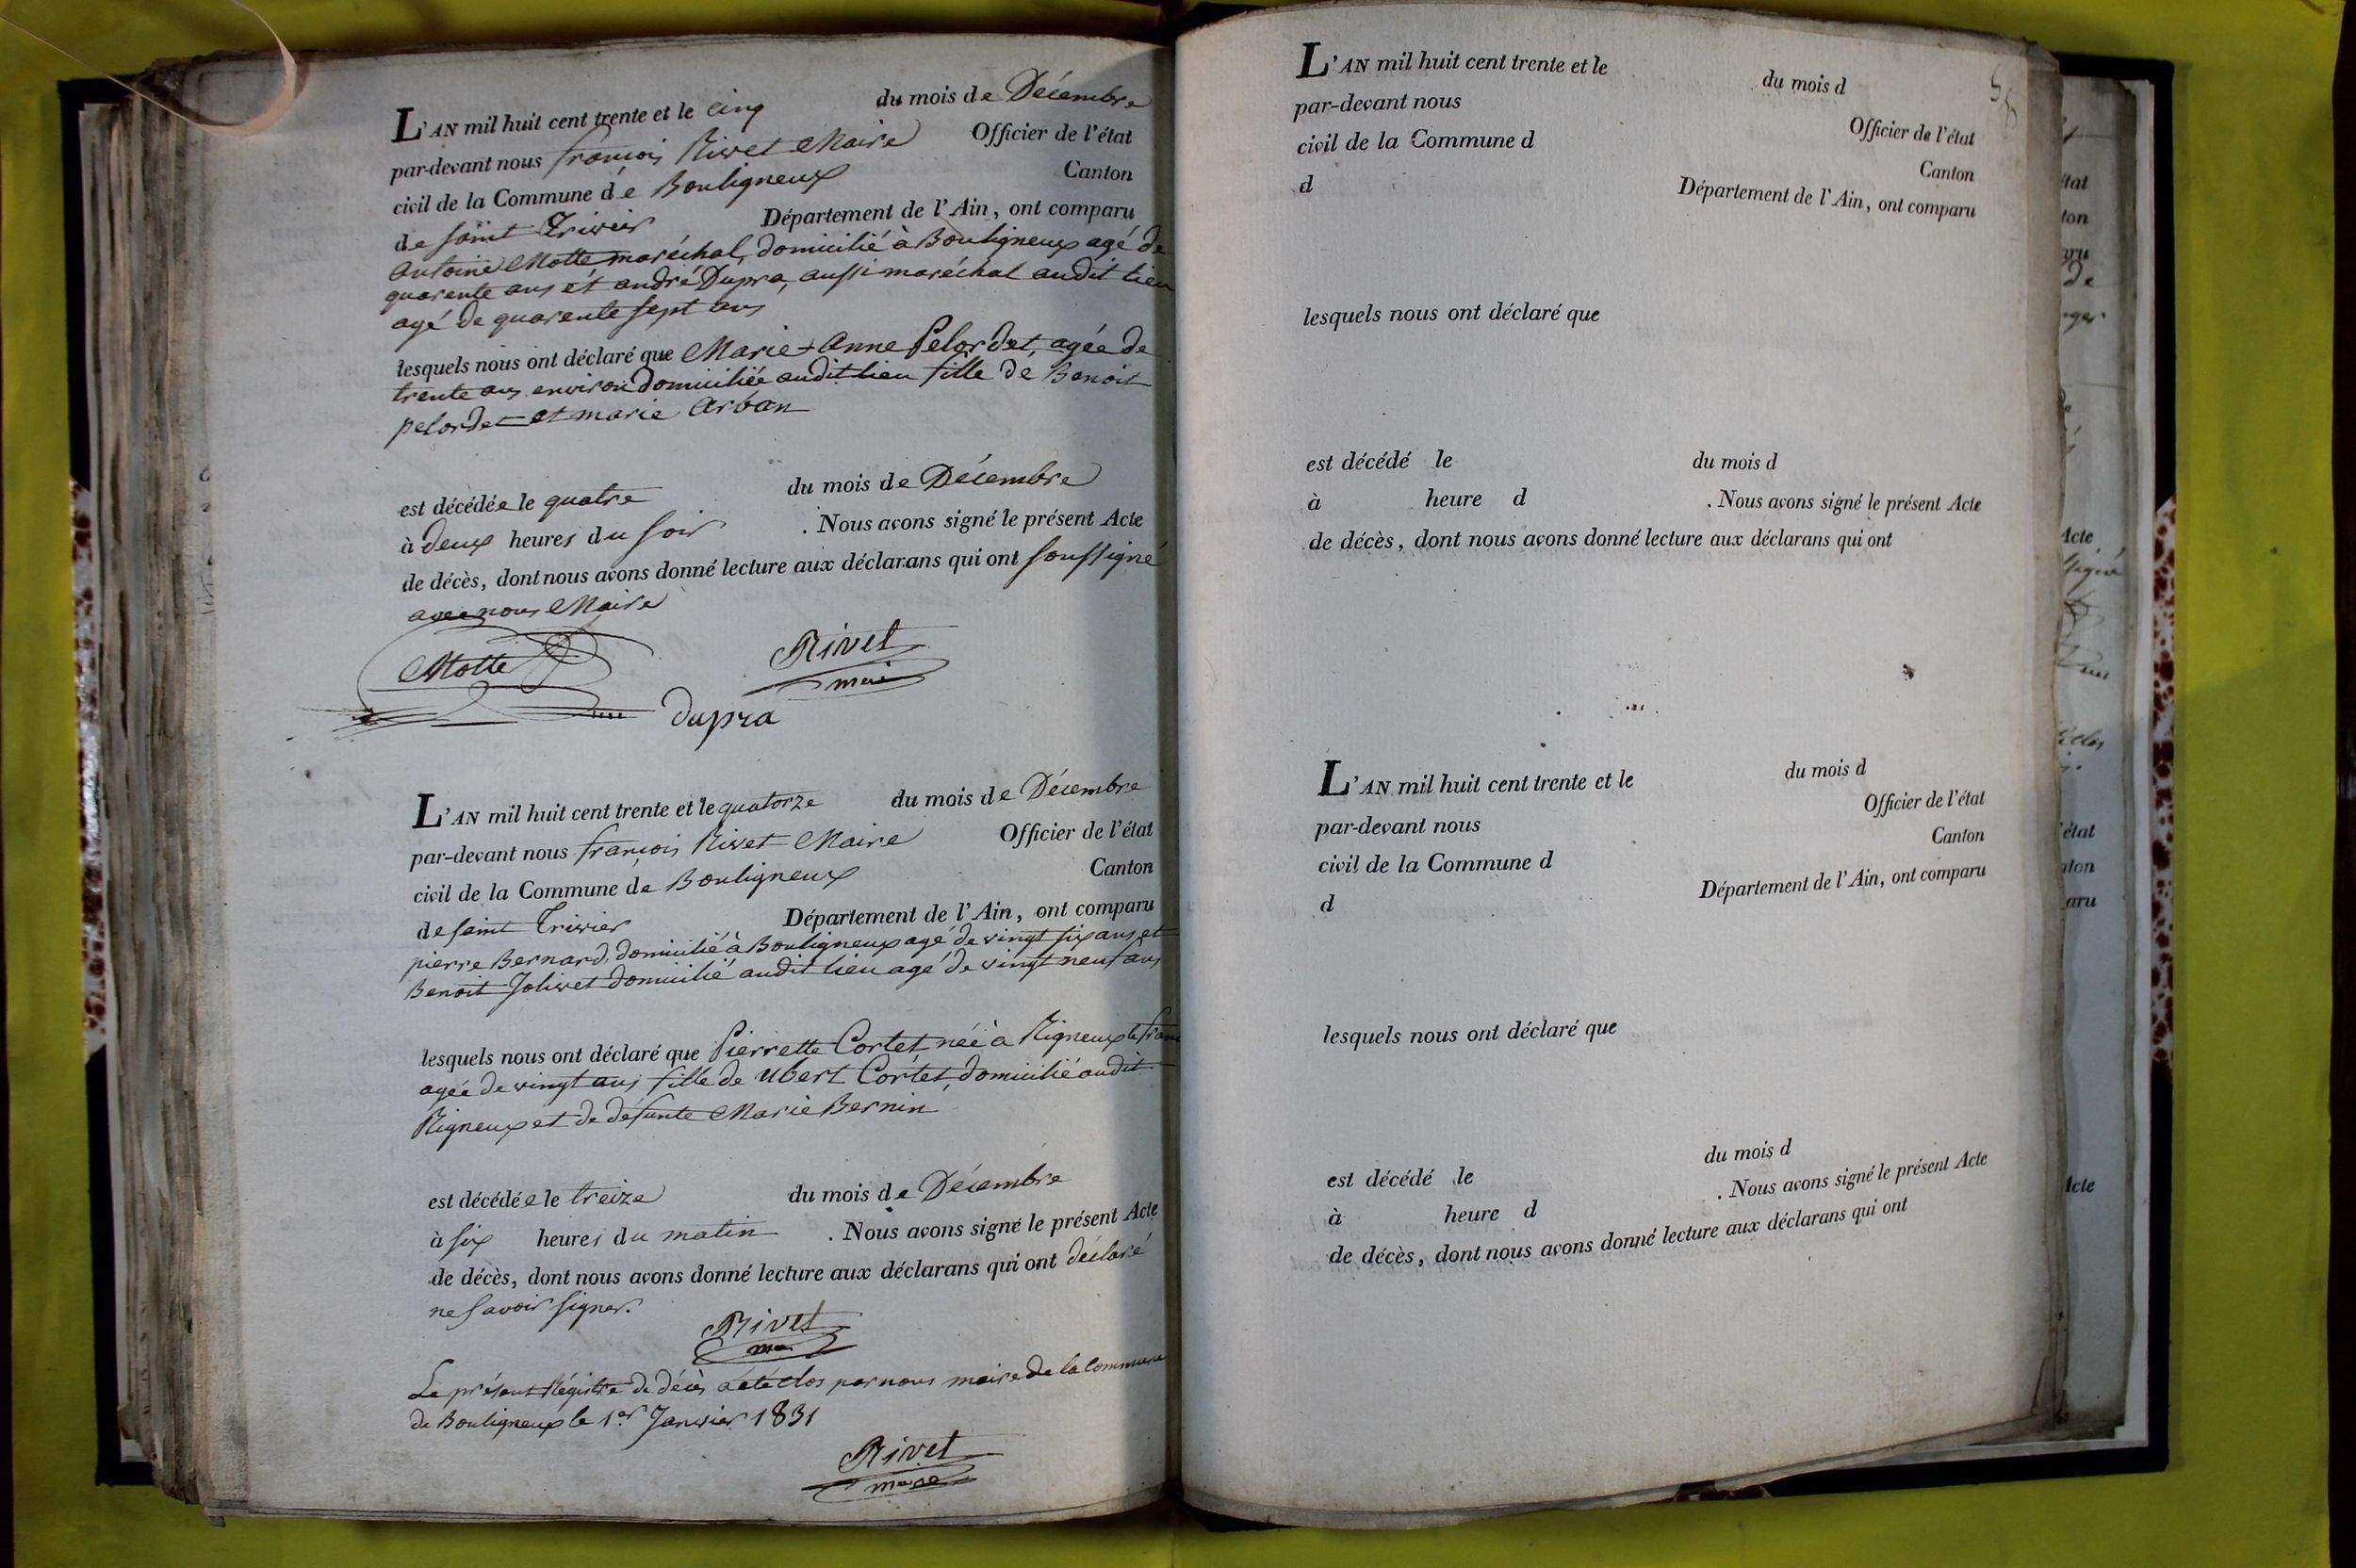 L'AN mil huit cent trente et le cinq du mois de Décembre
par-devant nous françois Rivet Maire Officier de l'état
civil de la Commune de Bouligneux Canton
de saint Trivier Département de l'Ain, ont comparu
Antoine Motte maréchal, domicilié à Bouligneux agé de
quarente ans et andré Dupra, aussi maréchal audit lieu
agé de quarente sept ans
lesquels nous ont déclaré que Marie Anne Pelordet, agée de
trente ans environ domiciliée audit lieu fille de Benoit
pelordet et marie Arban
est décédée le quatre du mois de Décembre
à deux heures du soir . Nous avons signé le présent Acte
de décès, dont nous avons donné lecture aux déclarans qui ont soussigné
avec nous Maire
Motte Rivet
maire
dupra
L'AN mil huit cent trente et le quatorze du mois de Décembre
par-devant nous françois Rivet Maire Officier de l'état
civil de la Commune de Bouligneux Canton
de saint Trivier Département de l'Ain, ont comparu
pierre Bernard, domicilié à Bouligneux agé de vingt six ans et
Benoit Jolivet domicilié audit lieu agé de vingt neuf ans
lesquels nous ont déclaré que Pierrette Cortet née à Rigneux le franc
agée de vingt ans fille de Ubert Cortet, domicilié audit
Rigneux et de défunte Marie Bernin
est décédée le treize du mois de Décembre
à six heures du matin . Nous avons signé le présent Acte
de décès, dont nous avons donné lecture aux déclarans qui ont déclaré
ne savoir signer.
Rivet
mre
Le présent Régistre de décès a été clos par nous maire de la Commune
de Bouligneux le 1er Janvier 1831
Rivet
maire
L'AN mil huit cent trente et le du mois d
par-devant nous Officier de l'état
civil de la Commune d Canton
d Département de l'Ain, ont comparu
lesquels nous ont déclaré que
est décédé le du mois d
à heure d . Nous avons signé le présent Acte
de décès, dont nous avons donné lecture aux déclarans qui ont
L'AN mil huit cent trente et le du mois d
par-devant nous Officier de l'état
civil de la Commune d Canton
d Département de l'Ain, ont comparu
lesquels nous ont déclaré que
est décédé le du mois d
à heure d . Nous avons signé le présent Acte
de décès, dont nous avons donné lecture aux déclarans qui ont